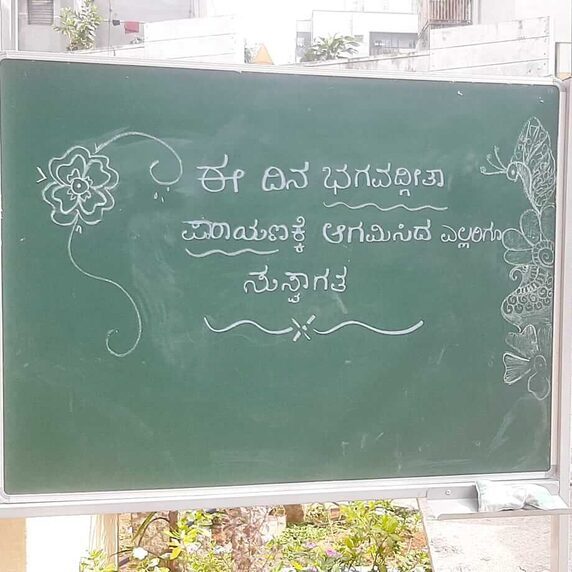 ಈ ದಿನ ಭಗವದ್ಗೀತಾ
ಪಾರಾಯಣಕ್ಕೆ ಆಗಮಿಸಿದ ಎಲ್ಲರಿಗೂ
ಸುಸ್ವಾಗತ